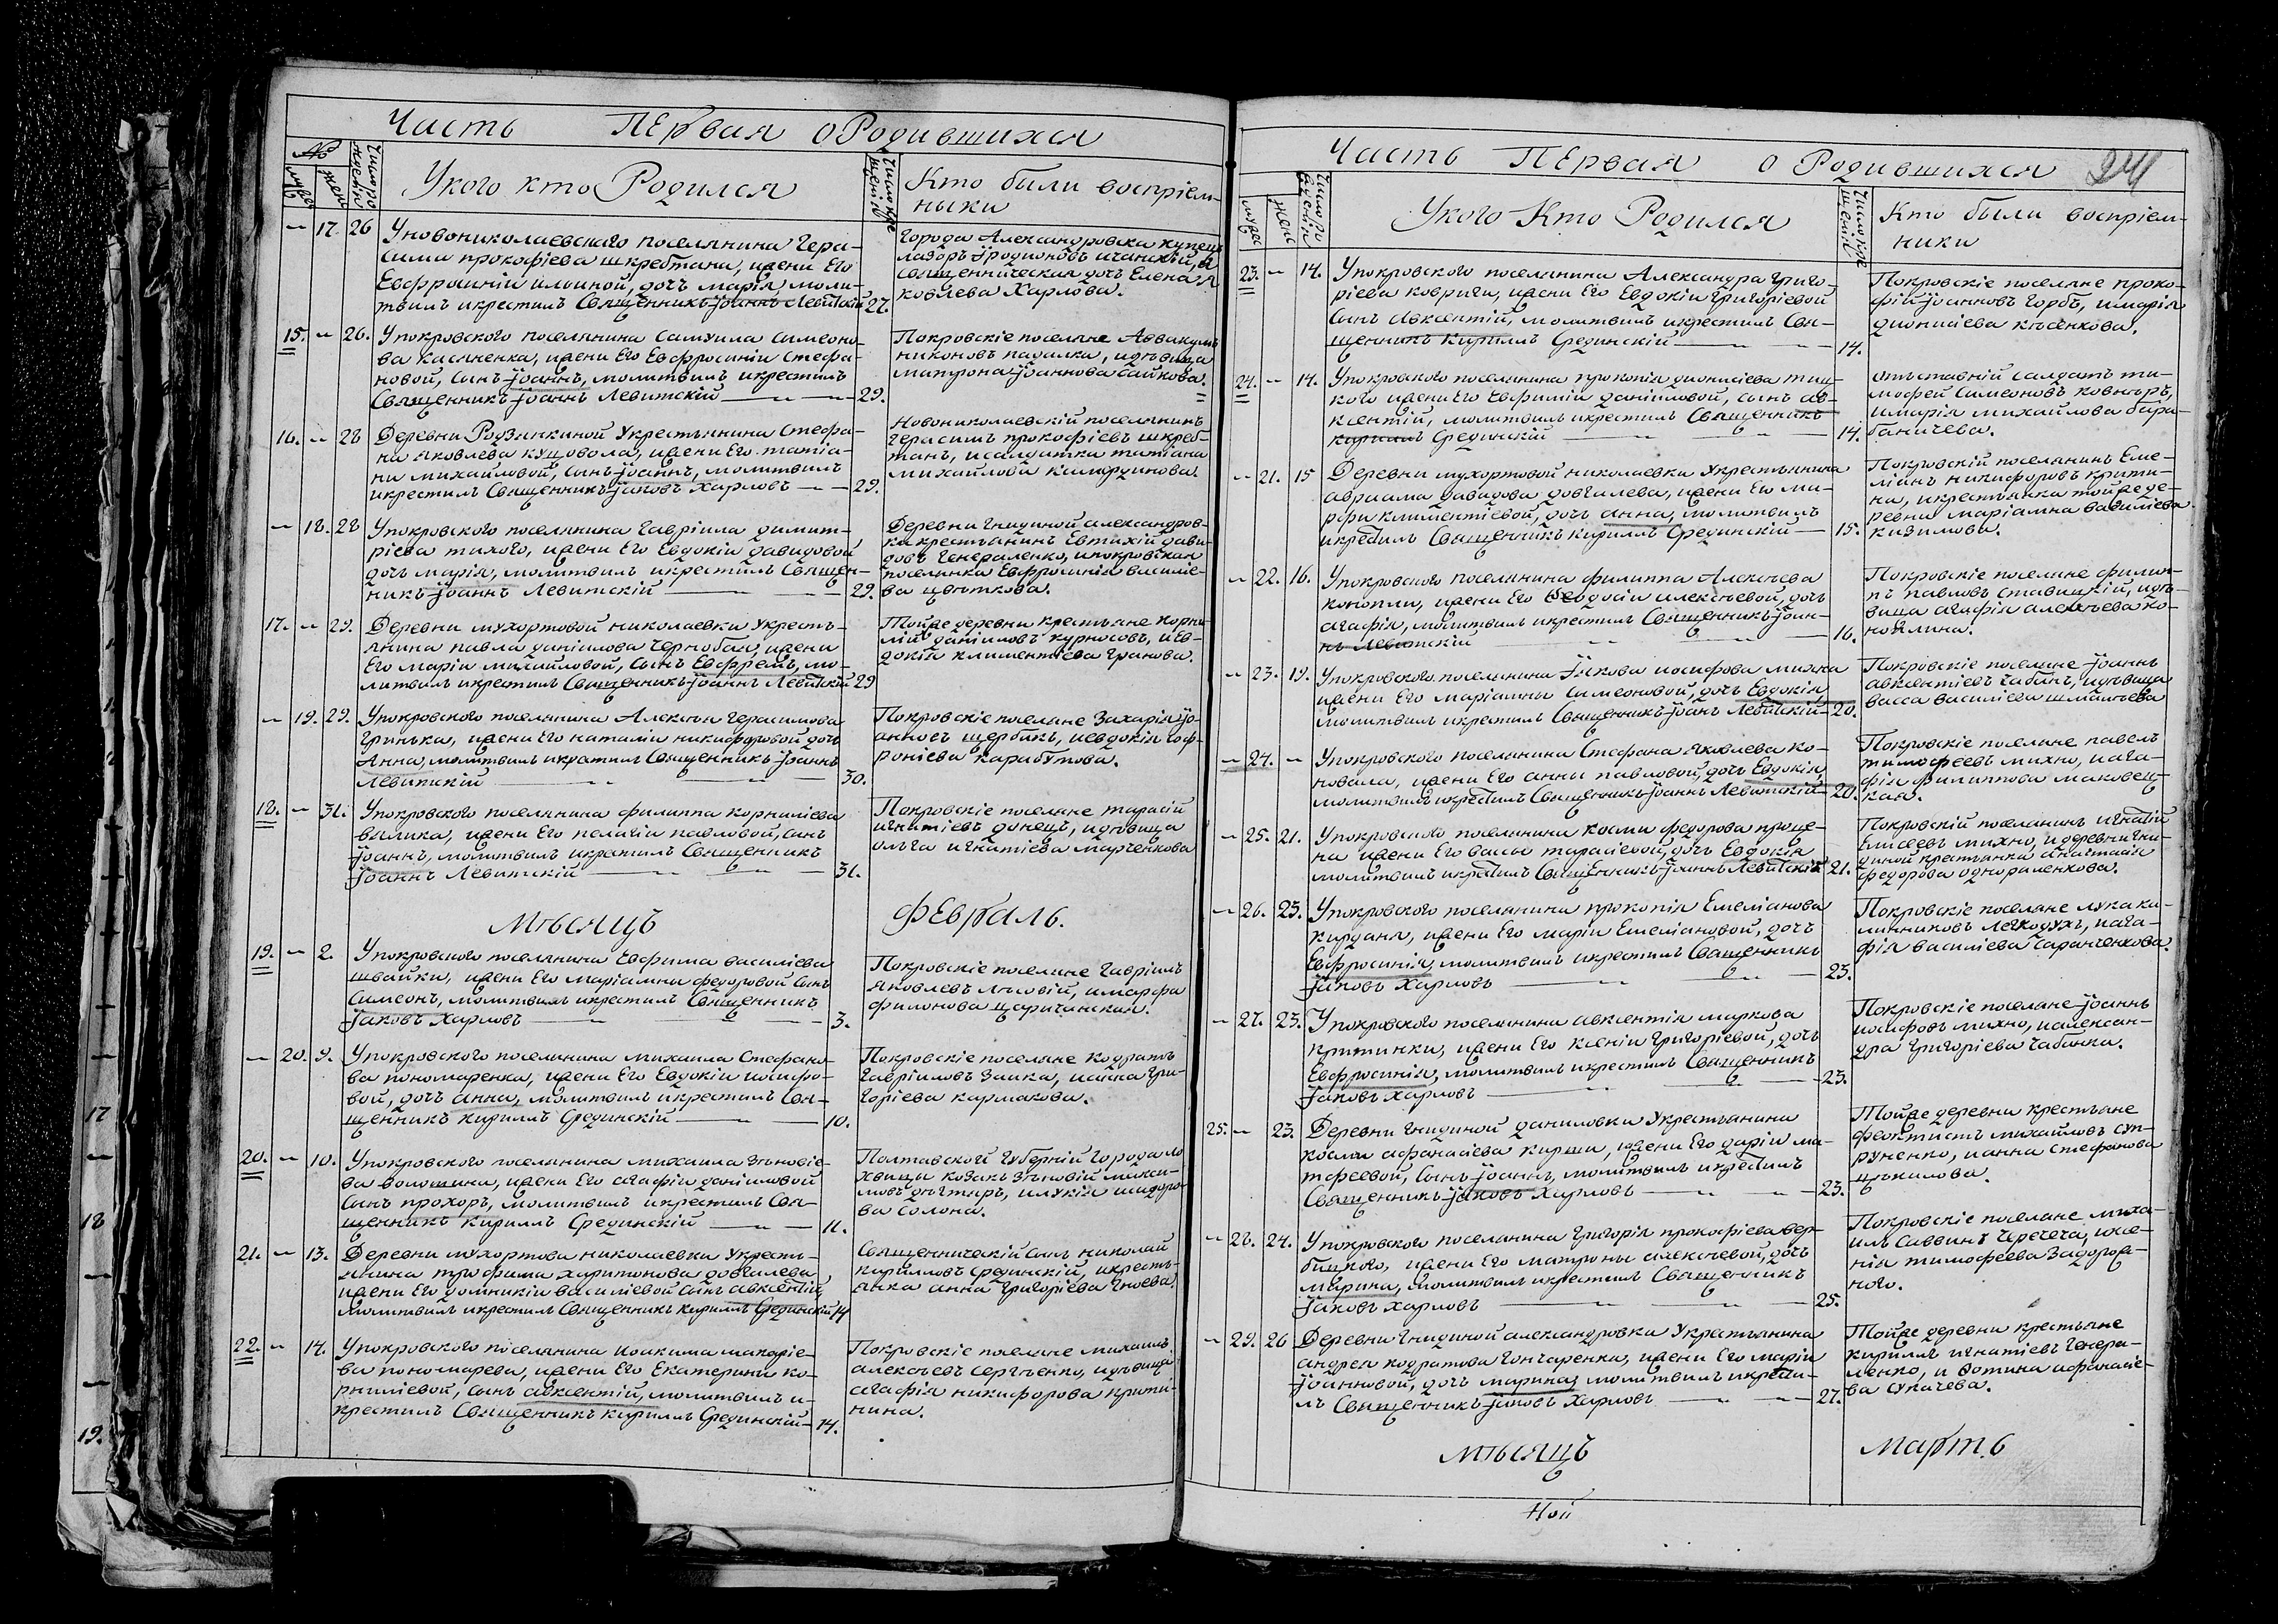 Часть Первая о Родившихся
№
мужес
женс
Число рождения
У кого кто Родился
Число крещения
Кто были воспріем-
ники
17. 26
У новониколаевскаго поселянина Гера-
сима прокофіева шкребтана, жены Его
Евфросиніи ильиной, дочь марія, моли-
твилъ и крестилъ Священникъ Іоаннъ Левитскій 27.
Города Александровска купецъ
лазоръ Іродионовъ
священническая дочь Елена Я-
ковлева Харлова.
15. 26.
У покровского поселянина Самуила Симеоно-
ва касяненка, жены Его Евфросиніи Стефа-
новой, сынъ Іоаннъ, молитвилъ и крестилъ
Священникъ Іоаннъ Левитскій 29.
Покровскіе поселяне Аввакумъ
никоновъ падалка, и дѣвица
матрона Іоаннова байкова.
16. 28
Деревни Родзянкиной У крестьянина Стефа-
на Яковлева кущовола, жены Его татіа-
ны михайловой, сынъ Іоаннъ, молитвилъ
и крестилъ Священникъ Іаковъ Харловъ 29.
Новониколаевскій поселянинъ
Герасимъ прокофіевъ шкреб-
танъ, и салдатка татіана
михайлова
18. 28
У покровского поселянина Гавріила димит-
ріева тихого, жены Его Евдокіи давидовой
дочь марія, молитвилъ и крестилъ Священ-
никъ Іоаннъ Левитскій 29.
Деревни Гнидиной александров-
ки крестьянинъ Евтихій дави-
довъ Генераленко, и покровская
поселянка Евфросинія василіе-
ва цвѣткова.
17. 29.
Деревни мухортовой николаевки У кресть-
янина павла даніилова Чернобая, жены
Его маріи михайловой, сынъ Евфремъ, мо-
литвилъ и крестилъ Священникъ Іоаннъ Левитскій 29
Тойже деревни крестьяне корни-
лій даніиловъ курносовъ, и Ев-
докія климентіева Гранова.
19. 29.
У покровского поселянина Алексѣя Герасимова
Гринька, жены Его наталіи никифоровой дочь
Анна, молитвилъ и крестилъ Священникъ Іоаннъ
Левитскій 30.
Покровскіе поселяне Захарія Іо-
анновъ щербакъ, и евдокія соф-
роніева карабутова.
18. 31.
У покровского поселянина филиппа корниліева
вялика, жены Его пелагіи павловой, сынъ
Іоаннъ, молитвилъ и крестилъ Священникъ
Іоаннъ Левитскій 31.
Покровскіе поселяне тарасій
игнатіевъ донецъ, и дѣвица
ольга игнатіева марченкова
Мѣсяцъ Февраль.
19. 2.
У покровского поселянина Евфима василіева
швайки, жены Его маріамны федоровой сынъ
Симеонъ, молитвилъ и крестилъ Священникъ
Іаковъ Харловъ 3.
Покровскіе поселяне Гавріилъ
Яковлевъ лѣсовій, и марфа
филонова царичанская.
20. 9.
У покровского поселянина михаила Стефано-
ва пономаренка, жены Его Евдокіи иосифо-
вой, дочь анна, молитвилъ и крестилъ Свя-
щенникъ кирилъ Срединскій 10.
Покровскіе поселяне кодратъ
Гавріиловъ Заика, и анна Гри-
горіева кармакова.
20. 10.
У покровского поселянина михаила зѣновіе-
ва волошина, жены Его агафіи даніиловой
сынъ прохоръ, молитвилъ и крестилъ Свя-
щенникъ кирилъ Срединскій 11.
Полтавской Губерніи Города ло
хвицы козакъ Зѣновій макси-
мовъ дѣхтяръ, и лукія исидоро-
ва Солона.
21. 13.
Деревни мухортова николаевки У кресть-
янина трофима харитонова довгалева
жены Его домникіи василіевой сынъ авксентій
молитвилъ и крестилъ Священникъ кирилъ Срединскій 14
Священническій сынъ николай
кирилловъ Срединскій, и кресть-
янка анна Григоріева Гноева.
22. 14.
У покровского поселянина иоакима макаріе-
ва пономарева, жены Его Екатерины ко-
рниліевой, сынъ авксентій, молитвилъ и
крестилъ Священникъ кирилъ Срединскій 14.
Покровскіе поселяне михаилъ
алексѣевъ Сергѣенко, и дѣвица
агафія никифорова крити-
нина.
Часть Первая о Родившихся
24
мужес
женс
Число рождения
У кого Кто Родился
Число крещения
Кто были воспріем-
ники
23. 14.
У покровского поселянина Александра Григо-
ріева ковриги, жены Его Евдокіи Григоріевой
сынъ Авксентій, молитвилъ и крестилъ Свя-
щенникъ кирилъ Срединскій 14.
Покровскіе поселяне проко-
фій Іоанновъ Горбъ, и марія
дионисіева кѣсенкова.
24. 14.
У покровского поселянина прокопія дионисіева тиц-
кого жены Его Евфиміи даніиловой, сынъ ав-
ксентій, молитвилъ и крестилъ Священникъ
кирилъ Срединскій 14.
отъставній салдатъ ти-
мофей Симеоновъ ковнѣръ,
и марія михайлова бара-
баничева.
21. 15
Деревни мухортовой николаевки У крестьянина
авраама давидова довгалева, жены Его ма-
рфы климентіевой, дочь анна, молитвилъ
и крестилъ Священникъ кирилъ Срединскій 15.
Покровскій поселянинъ Еме-
ліанъ никифоровъ крити-
на, и крестьянка тойже де-
ревни маріамна василіева
казимова.
22. 16.
У покровского поселянина филиппа Алексѣева
коноплі, жены Его Феодосіи алексѣевой, дочь
агафія, молитвилъ и крестилъ Священникъ Іоан-
нъ Левитскій 16.
Покровскіе поселяне филип-
пъ павловъ Ставицкій, и дѣ-
вица агафія алексѣева ко-
ноплина.
23. 19.
У покровского поселянина Іакова иосифова михна
жены Его маріамны Симеоновой, дочь Евдокія
молитвилъ и крестилъ Священникъ Іоаннъ Левитскій 20.
Покровскіе поселяне Іоаннъ
авксентіевъ Чабанъ, и дѣвица
васса василіева шматѣева
24.
У покровского поселянина Стефана Яковлева ко-
новала, жены Его анны павловой, дочь Евдокія,
молитвилъ и крестилъ Священникъ Іоаннъ Левитскій 20.
Покровскіе поселяне павелъ
тимофеевъ михно, и ага-
фія филиппова маковец-
кая.
25. 21.
У покровского поселянина косми федорова проце-
на жены Его вассы тарасіевой, дочь Евдокія
молитвилъ и крестилъ Священникъ Іоаннъ Левитскій 21.
Покровскій поселянинъ игнатій
Елисеевъ михно, и деревни Гни-
диной крестьянка анастасія
федорова однораленкова.
26. 23.
У покровского поселянина прокопія Емеліанова
кирданя, жены Его маріи Емеліановой, дочь
Евфросинія, молитвилъ и крестилъ Священникъ
Іаковъ Харловъ 23.
Покровскіе поселяне лука ка-
линниковъ легкодухъ, и ага-
фія василіева Саранченкова.
27. 23.
У покровского поселянина авксентія маркова
критинки, жены Его ксеніи Григоріевой, дочь
Евфросинія, молитвилъ и крестилъ Священникъ
Іаковъ Харловъ 23.
Покровскіе поселяне Іоаннъ
иосифовъ михно, и алексан-
дра Григоріева Чабанка.
25. 23.
Деревни Гнидиной даниловки У крестьянина
космы афанасіева кирши, жены Его даріи ма-
тфеевой, сынъ Іоаннъ, молитвилъ и крестилъ
Священникъ Іаковъ Харловъ 23.
Тойже деревни крестьяне
феоктистъ михайловъ суп-
руненко, и анна Стефанова
цѣкилова.
28. 24.
У покровского поселянина Григорія прокофіева вер-
бицкого, жены Его матроны алексѣевой, дочь
марина, молитвилъ и крестилъ Священникъ
Іаковъ Харловъ 25.
Покровскіе поселяне миха-
илъ Саввинъ Черечеча, и ксе-
нія тимофеева Задорож-
ного.
29. 26
Деревни Гнидиной александровки У крестьянина
андрея кодратова Гончаренка, жены Его маріи
Іоанновой, дочь марина, молитвилъ и крести-
лъ Священникъ Іаковъ Харловъ 27.
Тойже деревни крестьяне
кирилъ игнатіевъ Генера-
ленко, и фотина афанасіе-
ва сукачева.
мѣсяцъ мартъ
17
18
19.